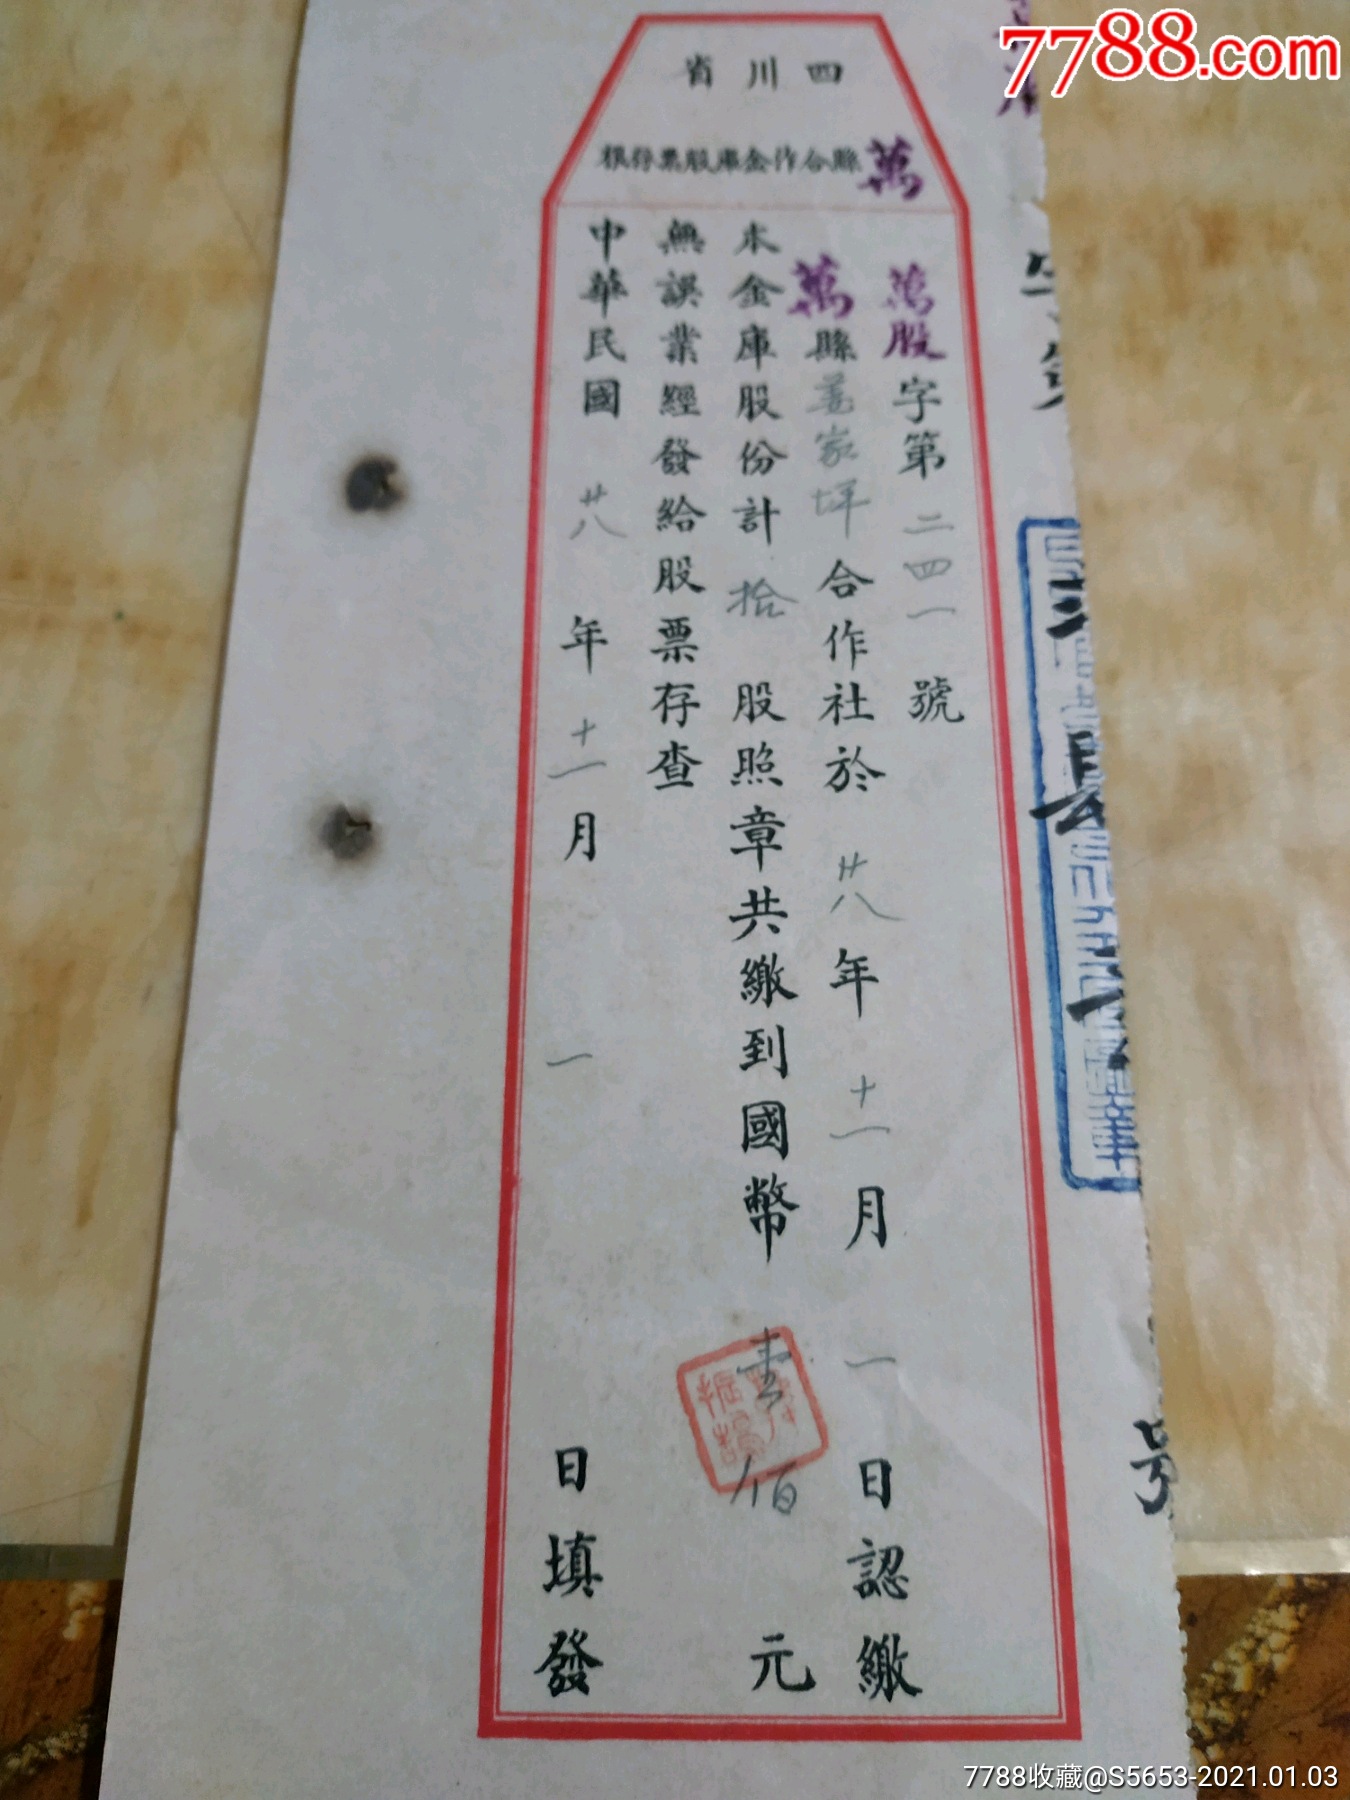 7788.com
四川省
萬縣合作金庫股票存根
萬股字第二四一號
萬縣姜家坪合作社於廿八年十一月一日認繳
本金庫股份計拾股照章共繳到國幣壹佰元
無誤業經發給股票存查
中華民國廿八年十一月一日填發
7788收藏@S5653-2021.01.03